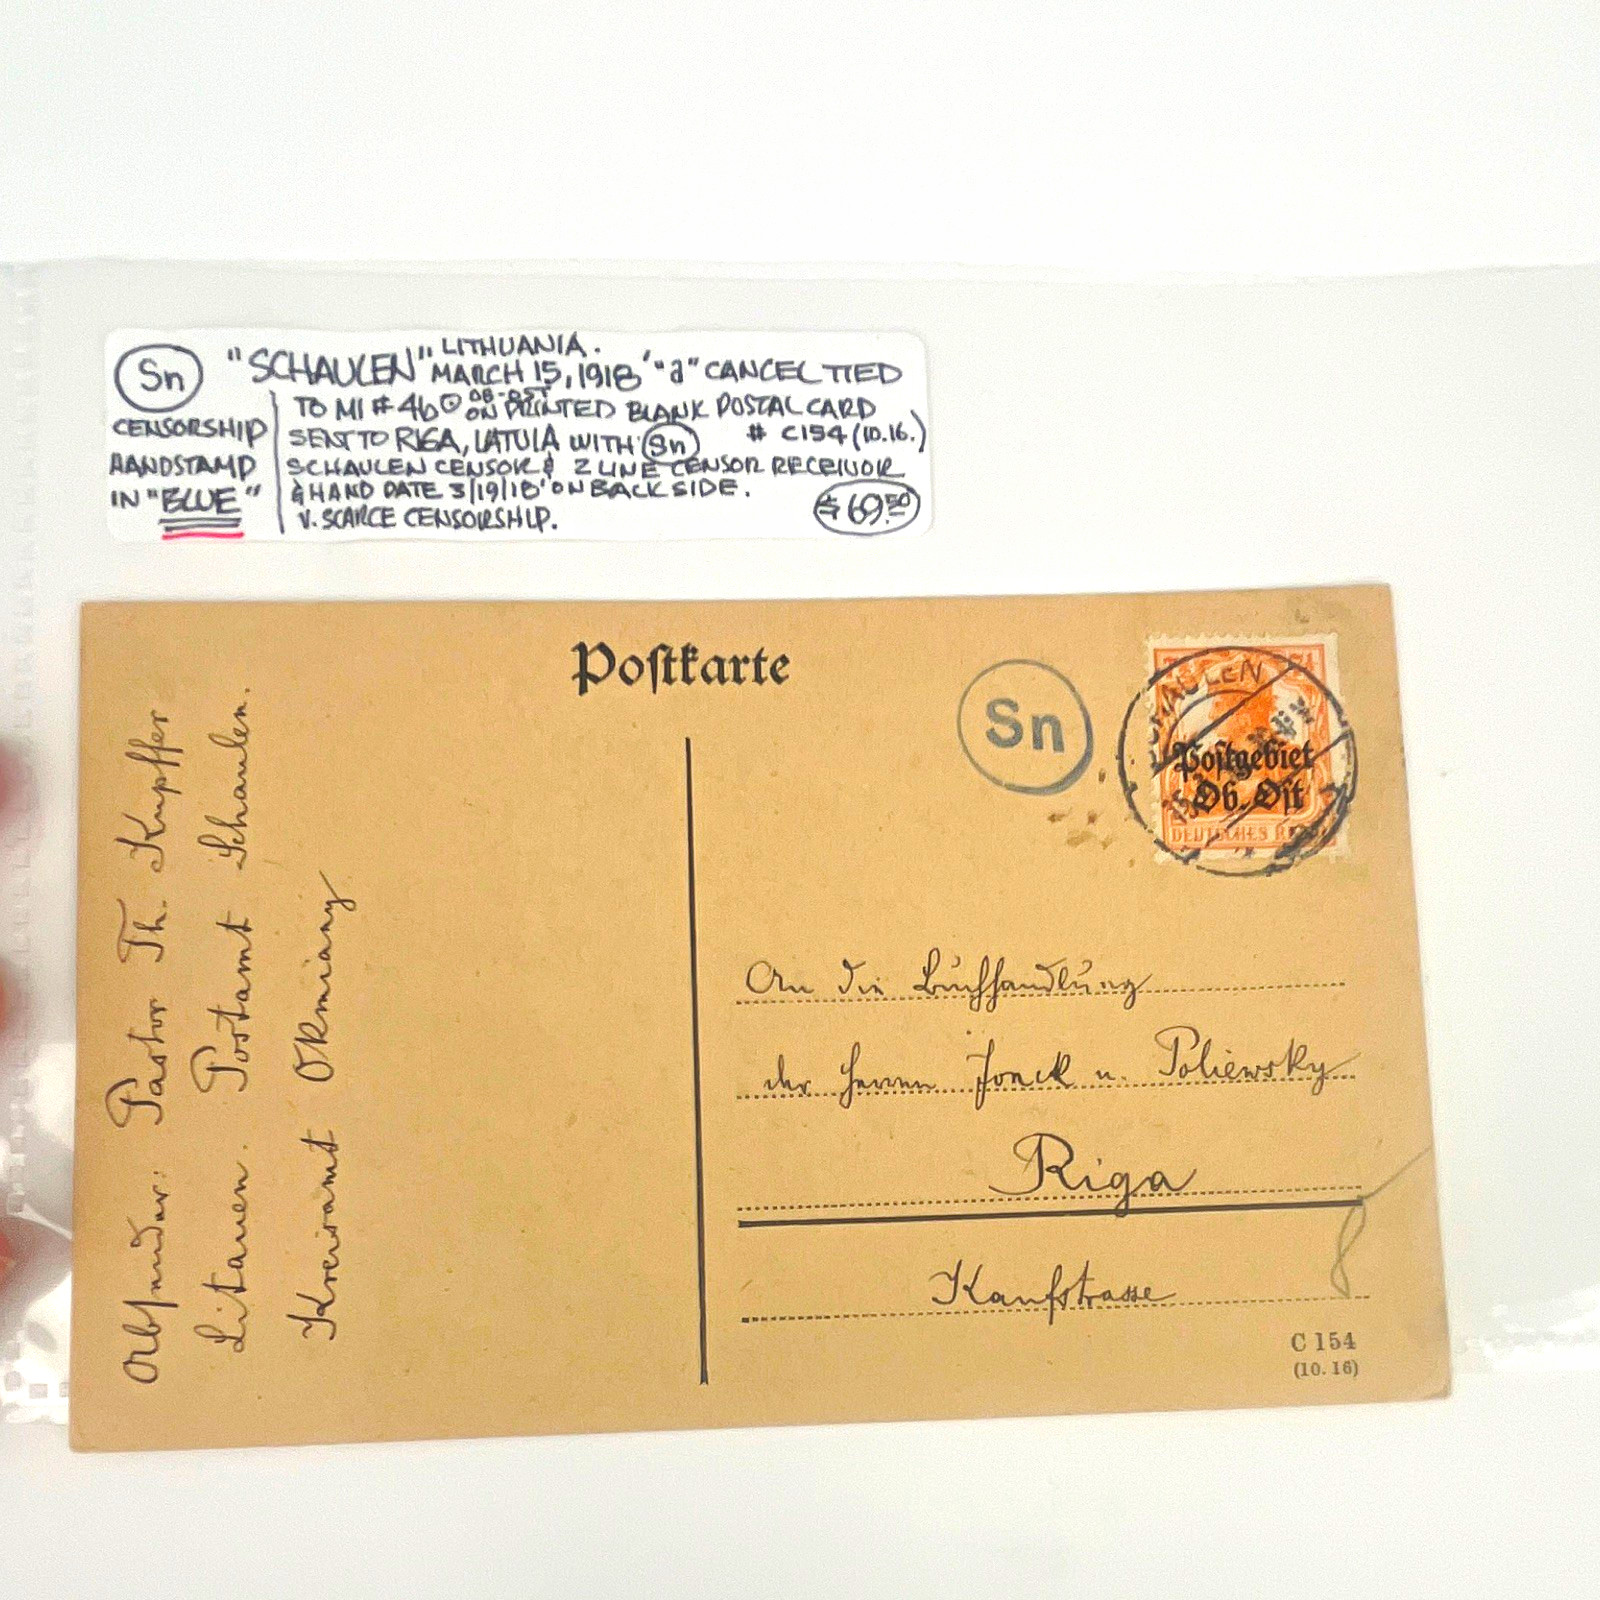 Sn
CENSORSHIP
HANDSTAMP
IN "BLUE"
"SCHAULEN" LITHUANIA.
MARCH 15, 1918' "a" CANCEL TIED
TO MI # 4b OB-OST ON PRINTED BLANK POSTAL CARD
# C154 (10.16.)
SENT TO RIGA, LATVIA WITH Sn
SCHAULEN CENSOR & 2 LINE CENSOR RECEIVOR
& HAND DATE 3/19/18' ON BACK SIDE.
V. SCARCE CENSORSHIP.
$69.50
Postkarte
Sn
SCHAULEN
Postgebiet
Ob. Ost
DEUTSCHES REICH
Absender: Pastor Th. Kupffer
Litauen. Postamt Schaulen.
Kreisamt Okmiany
An die Buchhandlung
der Herren Jonck u. Poliewsky
Riga
Kaufstrasse
8
C 154
(10. 16)